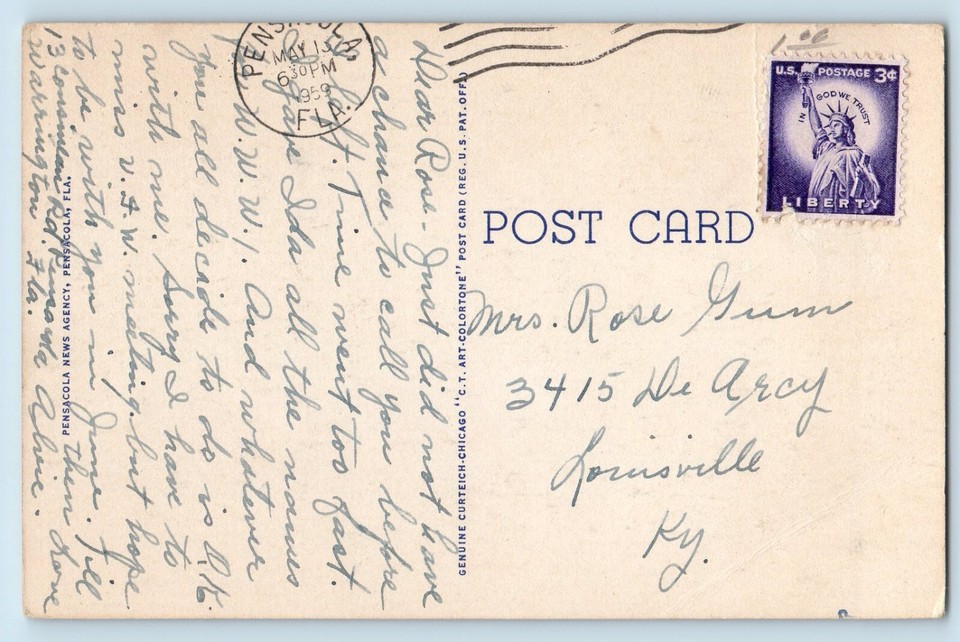 Dear Rose - Just did not have
a chance to call you before
I left. Time went too fast.
I gave Ida all the names
W.W.W.I. And whatever
you all decide to do is O.K.
with me. Sorry I have to
miss V.F.W. meeting but hope
to be with you in June. Till
then Love
Alvie.
13
Warrington Fla.
PENSACOLA NEWS AGENCY, PENSACOLA, FLA.
GENUINE CURTEICH-CHICAGO "C.T. ART-COLORTONE" POST CARD (REG. U.S. PAT. OFF.)
PENSACOLA,
MAY 13
6 30 PM
1959
FLA.
1 00
U.S. POSTAGE 3¢
IN GOD WE TRUST
LIBERTY
POST CARD
Mrs. Rose Gum
3415 De Arcy
Louisville
Ky.